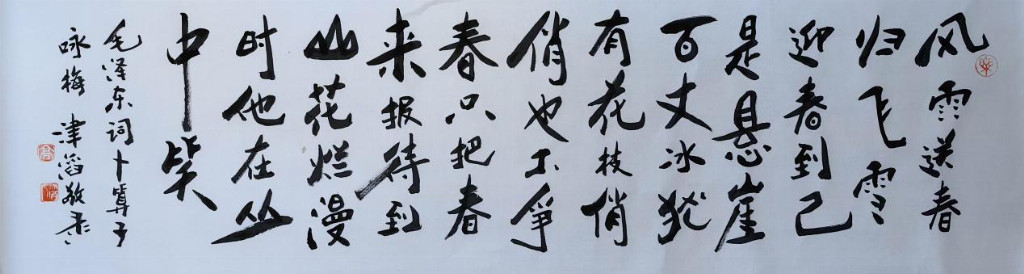 风雨送春
归飞雪
迎春到已
是悬崖
百丈冰犹
有花枝俏
俏也不争
春只把春
来报待到
山花烂漫
时他在丛
中笑
毛泽东词卜算子
咏梅 津滔敬录